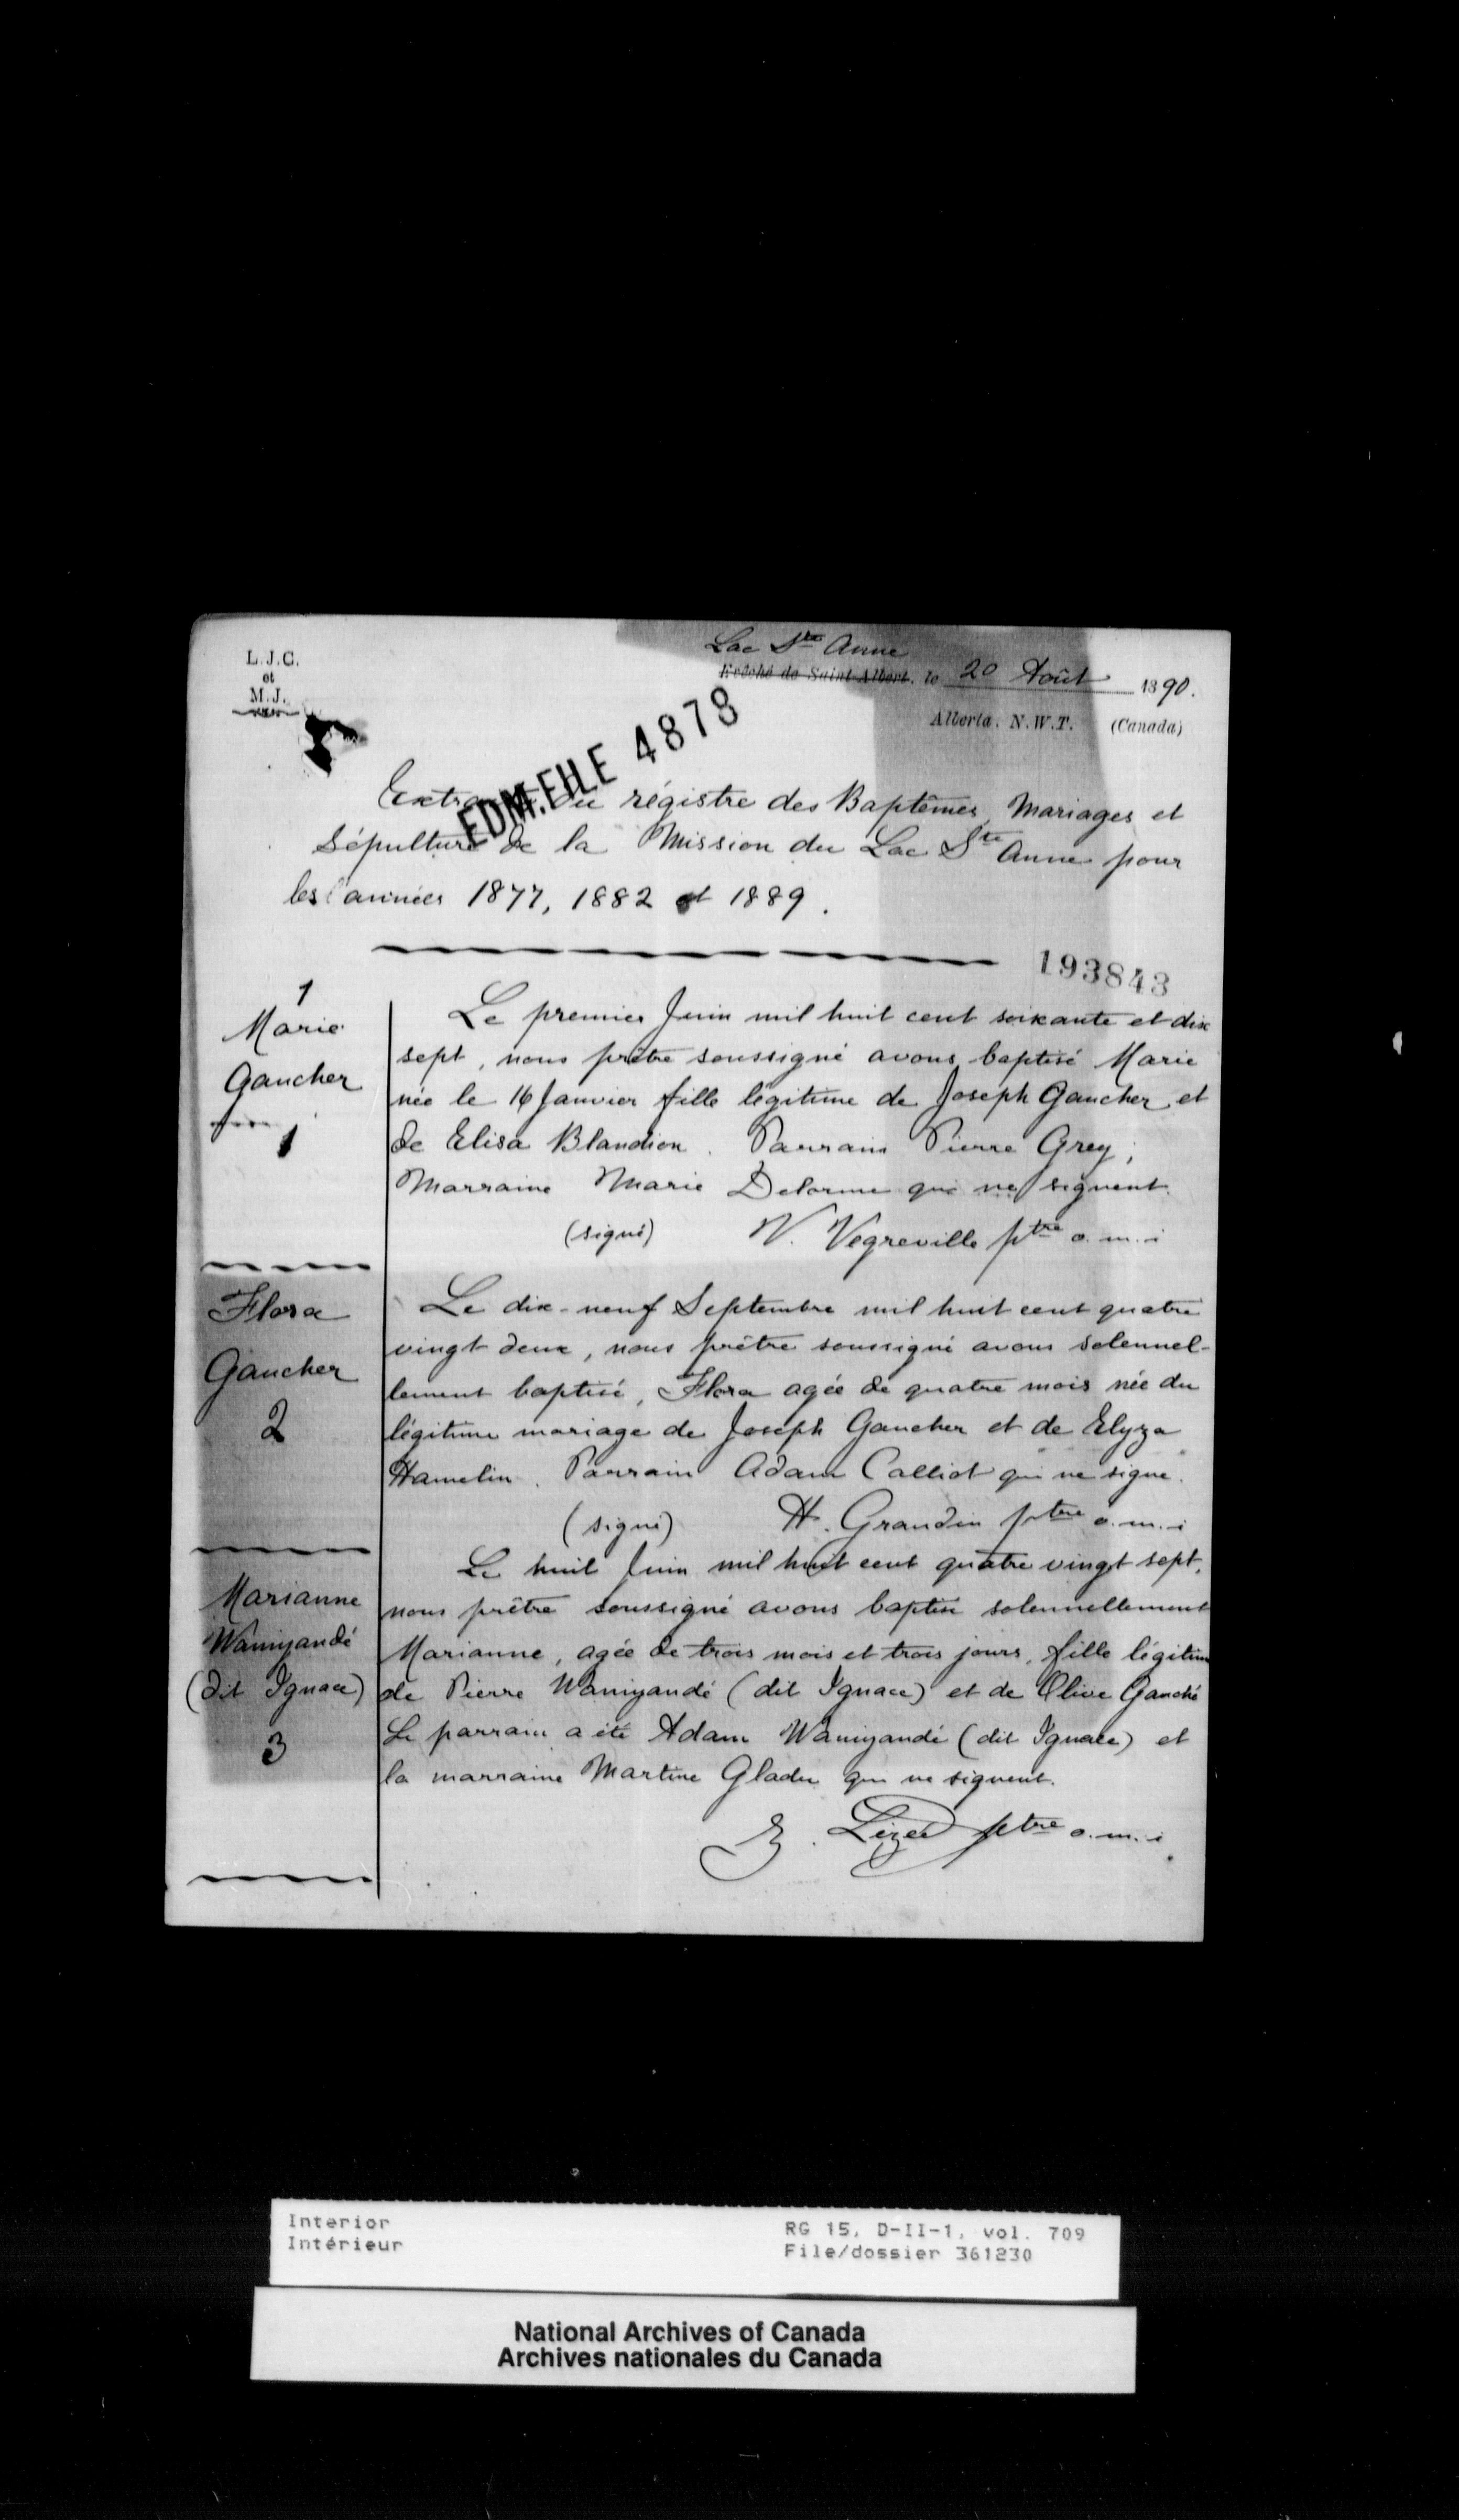 L.J.C.
et
M.J.
Lac Ste Anne
Evêché de Saint-Albert, le 20 Août 1890.
Alberta. N.W.T. (Canada)
EDM. FILE 4878
Extrait du régistre des Baptêmes, Mariages et
Sépulture de la Mission du Lac Ste Anne pour
les années 1877, 1882 et 1889.
193843
1
Marie
Gaucher
1
Le premier Juin mil huit cent soixante et dix
sept, nous prêtre soussigné avons baptisé Marie
née le 16 Janvier fille légitime de Joseph Gaucher et
de Elisa Blandion. Parrain Pierre Grey;
Marraine Marie Delorme qui ne signent.
(signé) V. Vegreville ptre o.m.i
Flora
Gaucher
2
Le dix-neuf Septembre mil huit cent quatre
vingt deux, nous prêtre soussigné avons solennel-
lement baptisé, Flora agée de quatre mois née du
légitime mariage de Joseph Gaucher et de Elyza
Hamelin. Parrain Adam Calliot qui ne signe.
(signé) H. Grandin ptre o.m.i
Marianne
Waniyandé
(dit Ignace)
3
Le huit Juin mil huit cent quatre vingt sept,
nous prêtre soussigné avons baptisé solennellement
Marianne, agée de trois mois et trois jours, fille légitime
de Pierre Waniyandé (dit Ignace) et de Olive Gauché
Le parrain a été Adam Waniyandé (dit Ignace) et
la marraine Martine Gladu qui ne signent.
Z. Lizée ptre o.m.i
Interior
Intérieur
RG 15, D-II-1, vol. 709
File/dossier 361230
National Archives of Canada
Archives nationales du Canada